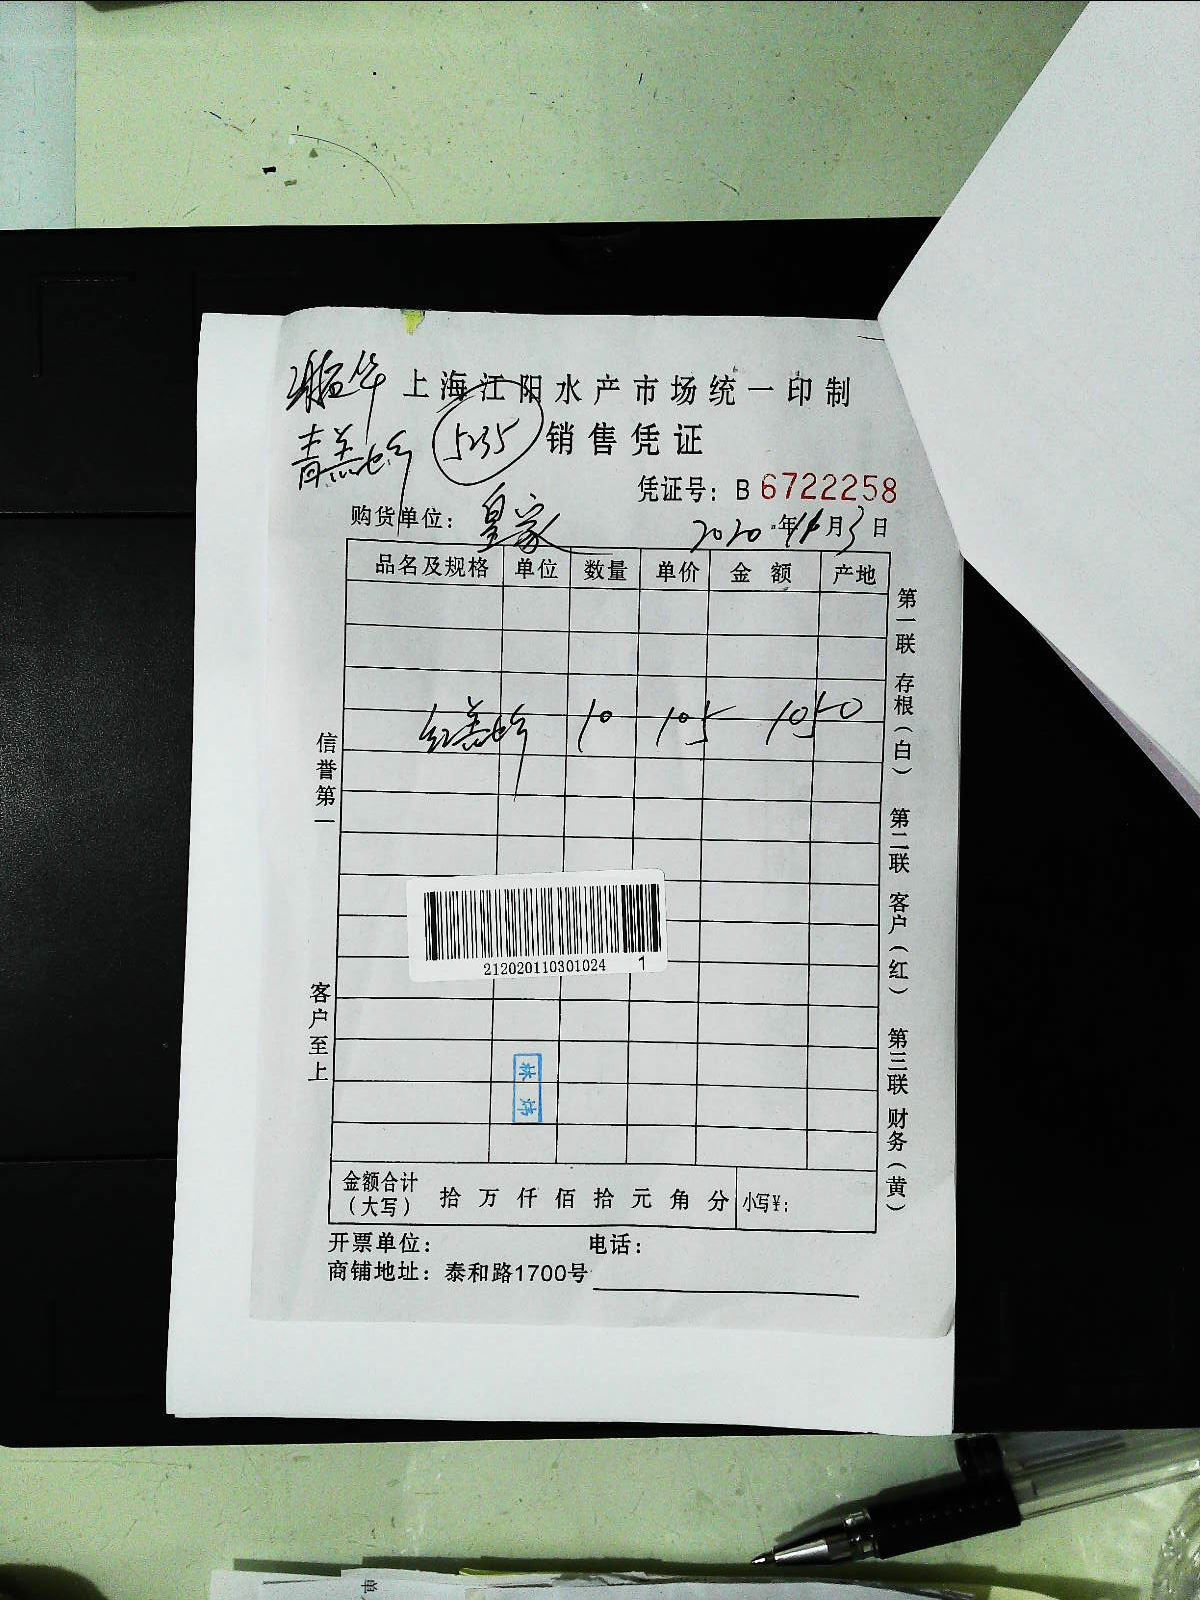 上海江阳水产市场统一印制
青羔蚧 5235 销售凭证
凭证号：B 6722258
购货单位：皇家 2020年11月3日
品名及规格 单位 数量 单价 金额 产地
10 105 1050
信誉第一
客户至上
第一联 存根（白） 第二联 客户（红） 第三联 财务（黄）
212020110301024 1
林 炜
金额合计（大写） 拾 万 仟 佰 拾 元 角 分 小写¥：
开票单位： 电话：
商铺地址：泰和路1700号